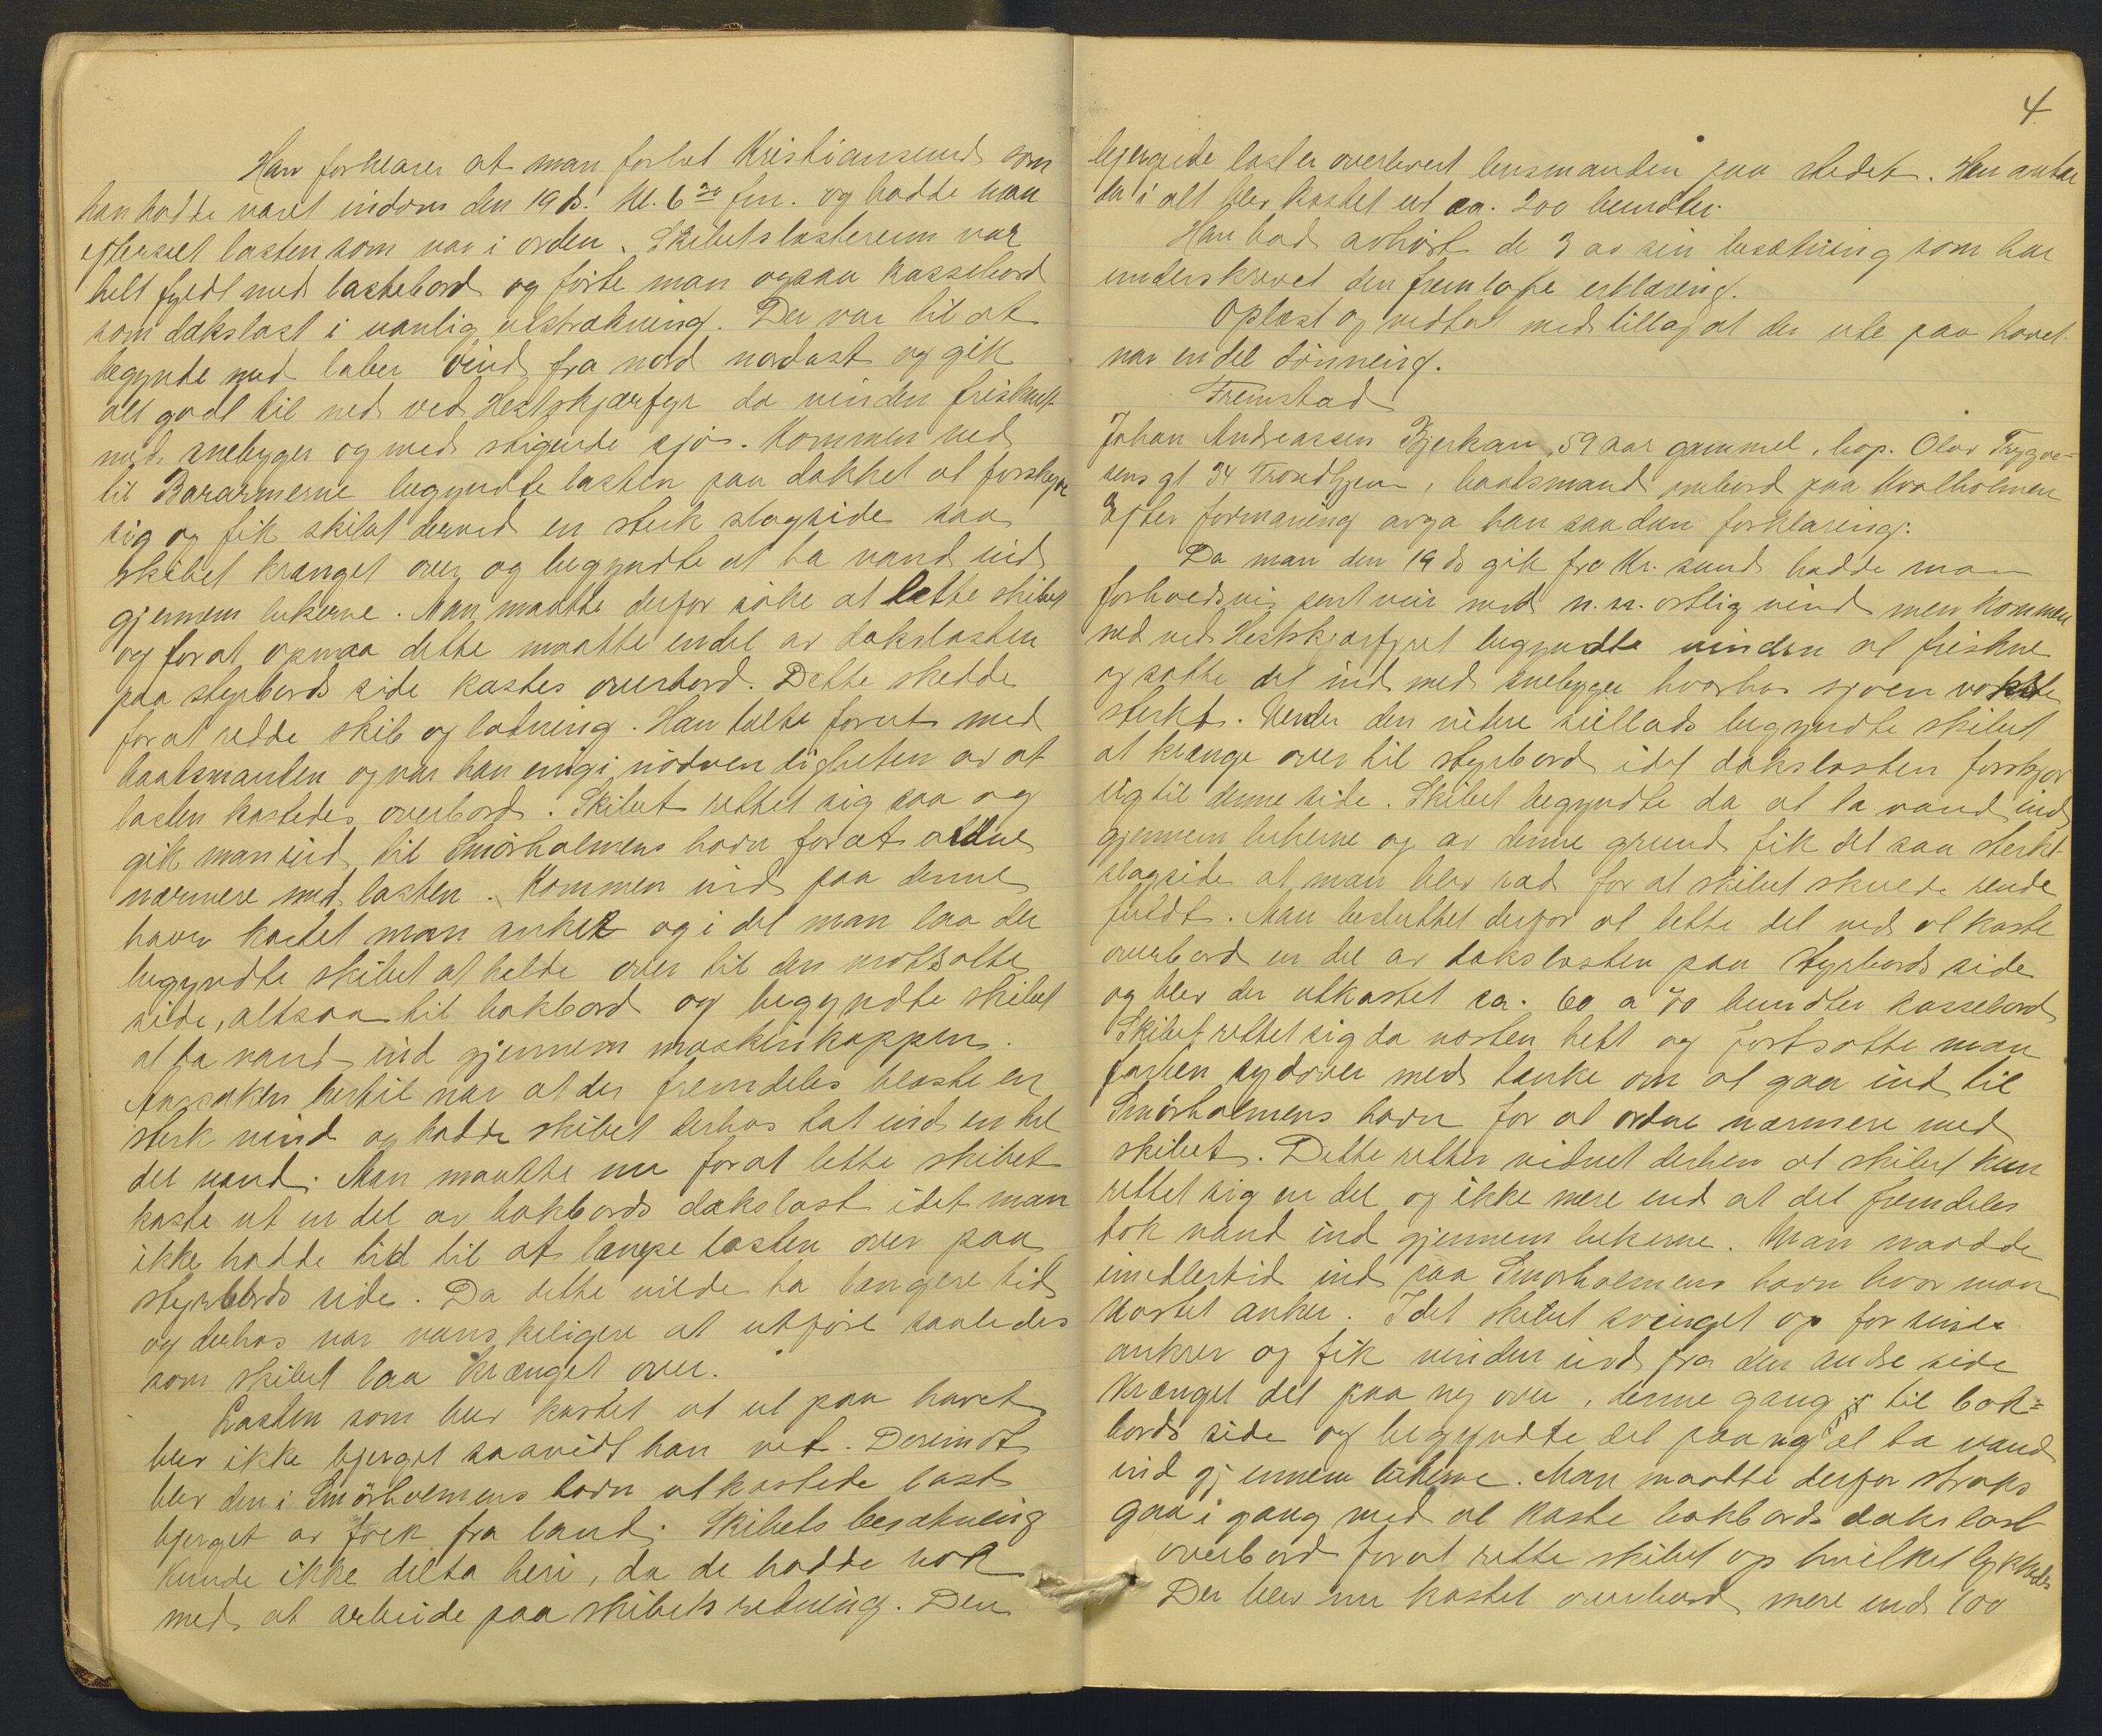 Han forklarer at man forlot Kristiansund som
han hadde været indom den 19 ds. kl. 6 30 fm. og hadde man
efterset lasten som var i orden. Skibets lasterum var
helt fyldt med lastebord og førte man ogsaa kassebord
som dækslast i vanlig utstrækning. Der var til at
begynde med laber vind fra nord nordost og gik
alt godt til ned ved Hestskjærfyr da vinden frisknet
med snebyger og med stigende sjø. Kommen ned
til Bararmerne begyndte lasten paa dækket at forskyve
sig og fik skibet derved en sterk slagside saa
skibet krænget over og begyndte at ta vand ind
gjennem lukerne. Man maatte derfor søke at lætte skibet
og for at opnaa dette maatte endel av dækslasten
paa styrbords side kastes overbord. Dette skedde
for at redde skib og ladning. Han talte forut med
baatsmanden og var han enig i nødvendigheten av at
lasten kastedes overbord. Skibet rettet sig saa og
gik man ind til Smørholmens havn for at ordne
nærmere med lasten. Kommen ind paa denne
havn kastet man anker og i det man laa der
begyndte skibet at helde over til den motsatte
side, altsaa til bakbord og begyndte skibet
at ta vand ind gjennem maskinkappen.
Aarsaken hertil var at der fremdeles blaaste en
sterk vind og hadde skibet derhos tat ind en hel
del vand. Man maatte nu for at lette skibet
kaste ut en del av bakbords dækslast idet man
ikke hadde tid til at længe lasten over paa
styrbords side. Da dette vilde ta længere tid
og derhos var vanskeligere at utføre saaledes
som skibet laa krænget over.
Lasten som blev kastet ut ut paa havet
blev ikke bjerget saavidt han vet. Derimot
blev den i Smørholmens havn utkastede last
bjerget av folk fra land. Skibets besætning
kunde ikke delta heri, da de hadde nok
med at arbeide paa skibets redning. Den
4
bjergede last er overlevert lensmanden paa stedet. Han antar
der i alt blev kastet ut ca. 200 bundter.
Han bad avhørt de 3 av sin besætning som har
underskrevet den fremlagte erklæring.
Oplæst og vedtat med tillæg at der ute paa havet
var en del dønning.
Fremstod
Johan Andreassen Bjerkan, 59 aar gammel, bop. Olav Trygva-
sens gt 34 Trondhjem, baatsmand ombord paa Kvalholmen
Efter formaning avga han saadan forklaring:
Da man den 19 ds gik fra Kr. sund hadde man
forholdsvis pent veir med n. n. ostlig vind men kommen
ned ved Hestskjærfyret begyndte vinden at friskne
og satte det ind med snebyger hvorhos sjøen vokste
sterkt. Under den videre seillads begyndte skibet
at krænge over til styrbord idet dækslasten forskjøv
sig til denne side. Skibet begyndte da at ta vand ind
gjennem lukerne og av denne grund fik det saa sterk
slagside at man blev ræd for at skibet skulde rende
fuldt. Man besluttet derfor at lette det ved at kaste
overbord en del av dækslasten paa styrbords side
og blev der utkastet ca. 60 a 70 bundter kassebord
Skibet rettet sig da næsten helt og fortsatte man
farten sydover med tanke om at gaa ind til
Smørholmens havn for at ordne nærmere med
skibet. Dette retter vidnet derhen at skibet kun
rettet sig en del og ikke mere end at det fremdeles
tok vand ind gjennem lukerne. Man naadde
imidlertid ind paa Smørholmens havn hvor man
kastet anker. Idet skibet svinget op for sine
ankrer og fik vinden ind fra den andre side
krænget det paa ny over, denne gang til bak=
bords side og begyndte det paa ny at ta vand
ind gjennem lukerne. Man maatte derfor straks
gaa i gang med at kaste bakbords dækslast
overbord for at rette skibet op hvilket lykkedes
Der blev nu kastet overbord mere end 100